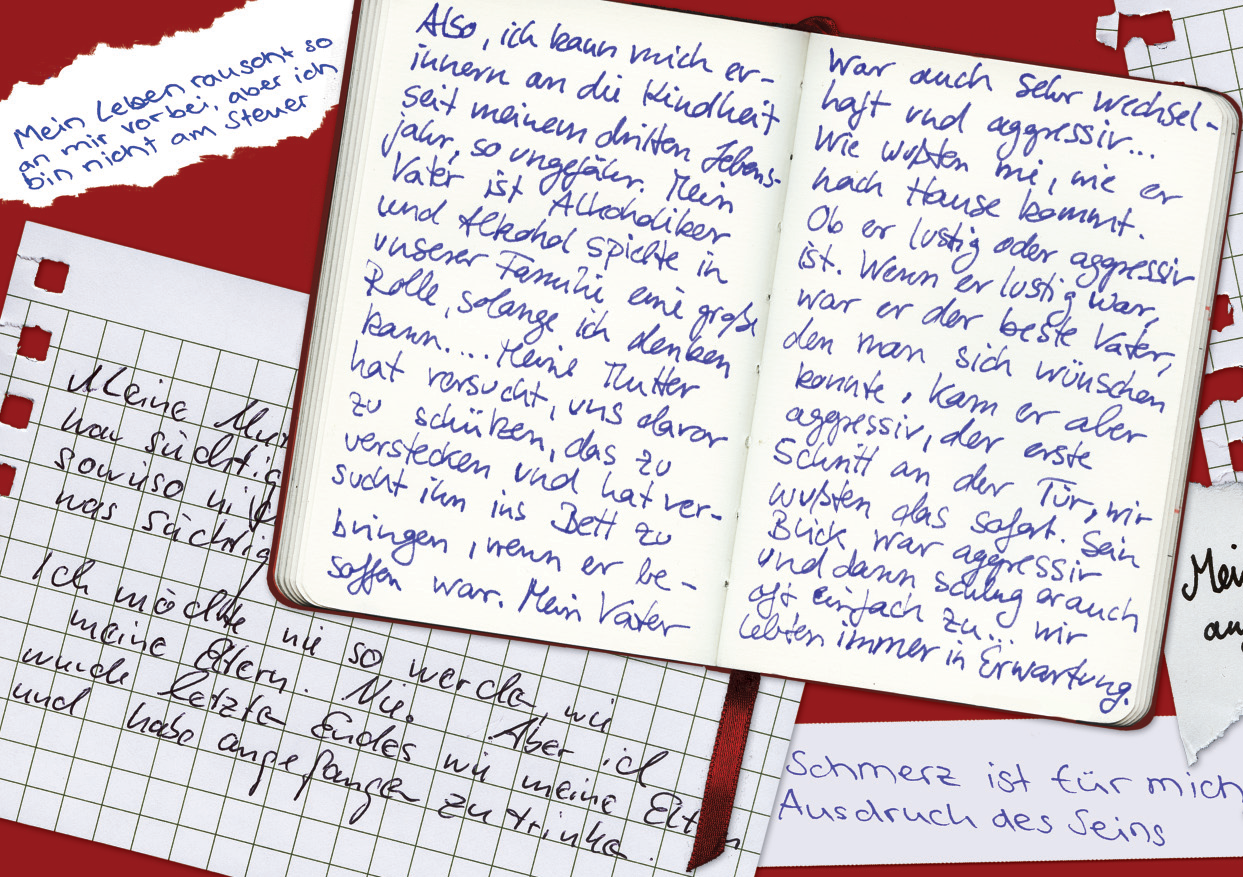 Mein Leben rauscht so
an mir vorbei, aber ich
bin nicht am Steuer
Also, ich kann mich er-
innern an die Kindheit
seit meinem dritten Lebens-
jahr, so ungefähr. Mein
Vater ist Alkoholiker
und Alkohol spielte in
unserer Familie eine große
Rolle, solange ich denken
kann.... Meine Mutter
hat versucht, uns davor
zu schützen, das zu
verstecken und hat ver-
sucht ihn ins Bett zu
bringen, wenn er be-
soffen war. Mein Vater
war auch sehr wechsel-
haft und aggressiv...
Wir wußten nie, wie er
nach Hause kommt.
Ob er lustig oder aggressiv
ist. Wenn er lustig war,
war er der beste Vater,
den man sich wünschen
konnte, kam er aber
aggressiv, der erste
Schritt an der Tür, wir
wußten das sofort. Sein
Blick war aggressiv
und dann schlug er auch
oft einfach zu... wir
lebten immer in Erwartung.
Meine Mut
war süchtig
sowieso
was süchtig
Ich möchte nie so werden, wie
meine Eltern. Nie. Aber ich
wurde letzten Endes wie meine Elt
und habe angefangen zu trinken.
Mei
an
Schmerz ist für mich
Ausdruck des Seins